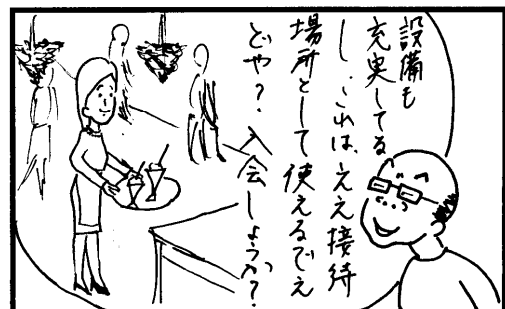 設備も
充実してる
し、これは、ええ接待
場所として使えるでえ
どや？入会しようか？